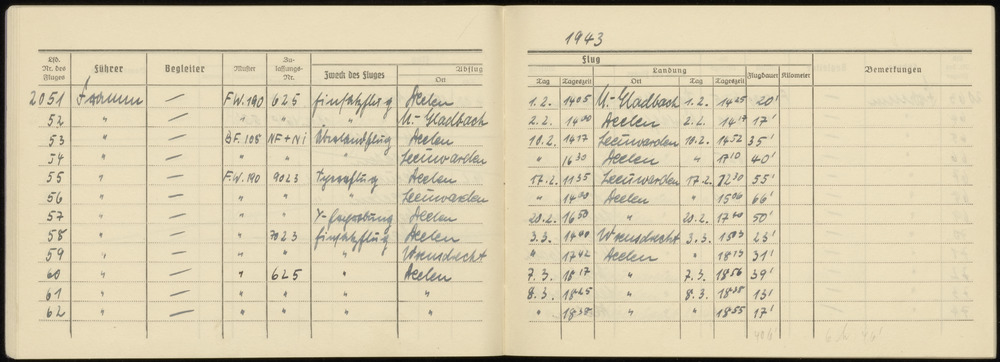 1943
Lfd. Nr. des Fluges Führer Begleiter Muster Zulassungs-Nr. Zweck des Fluges Abflug Ort Tag Tageszeit Flug Landung Ort Tag Tageszeit Flugdauer Kilometer Bemerkungen
2051 — F.W.190 625 Einsatzflug 1.2. 1405 M.-Gladbach 1.2. 1425 20'
52 " — " " " M.-Gladbach 2.2. 1400 2.2. 1417 17'
53 " — BF.108 NF+NI 10.2. 1417 Leeuwarden 10.2. 1452 35'
54 " — " " " Leeuwarden " 1630 " 1710 40'
55 " — F.W.190 9023 17.2. 1135 Leeuwarden 17.2. 1230 55'
56 " — " " " Leeuwarden " 1400 " 1506 66'
57 " — " " 20.2. 1650 " 20.2. 1740 50'
58 " — " 7023 Einsatzflug 3.3. 1400 Woensdrecht 3.3. 23'
59 " — " " " Woensdrecht " 1742 " 1813 31'
60 " — " 625 " 7.3. 1817 " 7.3. 1856 39'
61 " — " " " " 8.3. 1825 " 8.3. 1838 13'
62 " — " " " " " 1838 " " 1855 17'